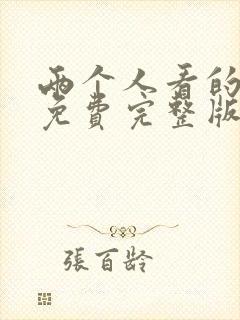 两个人看的
免費完整版
張百齡